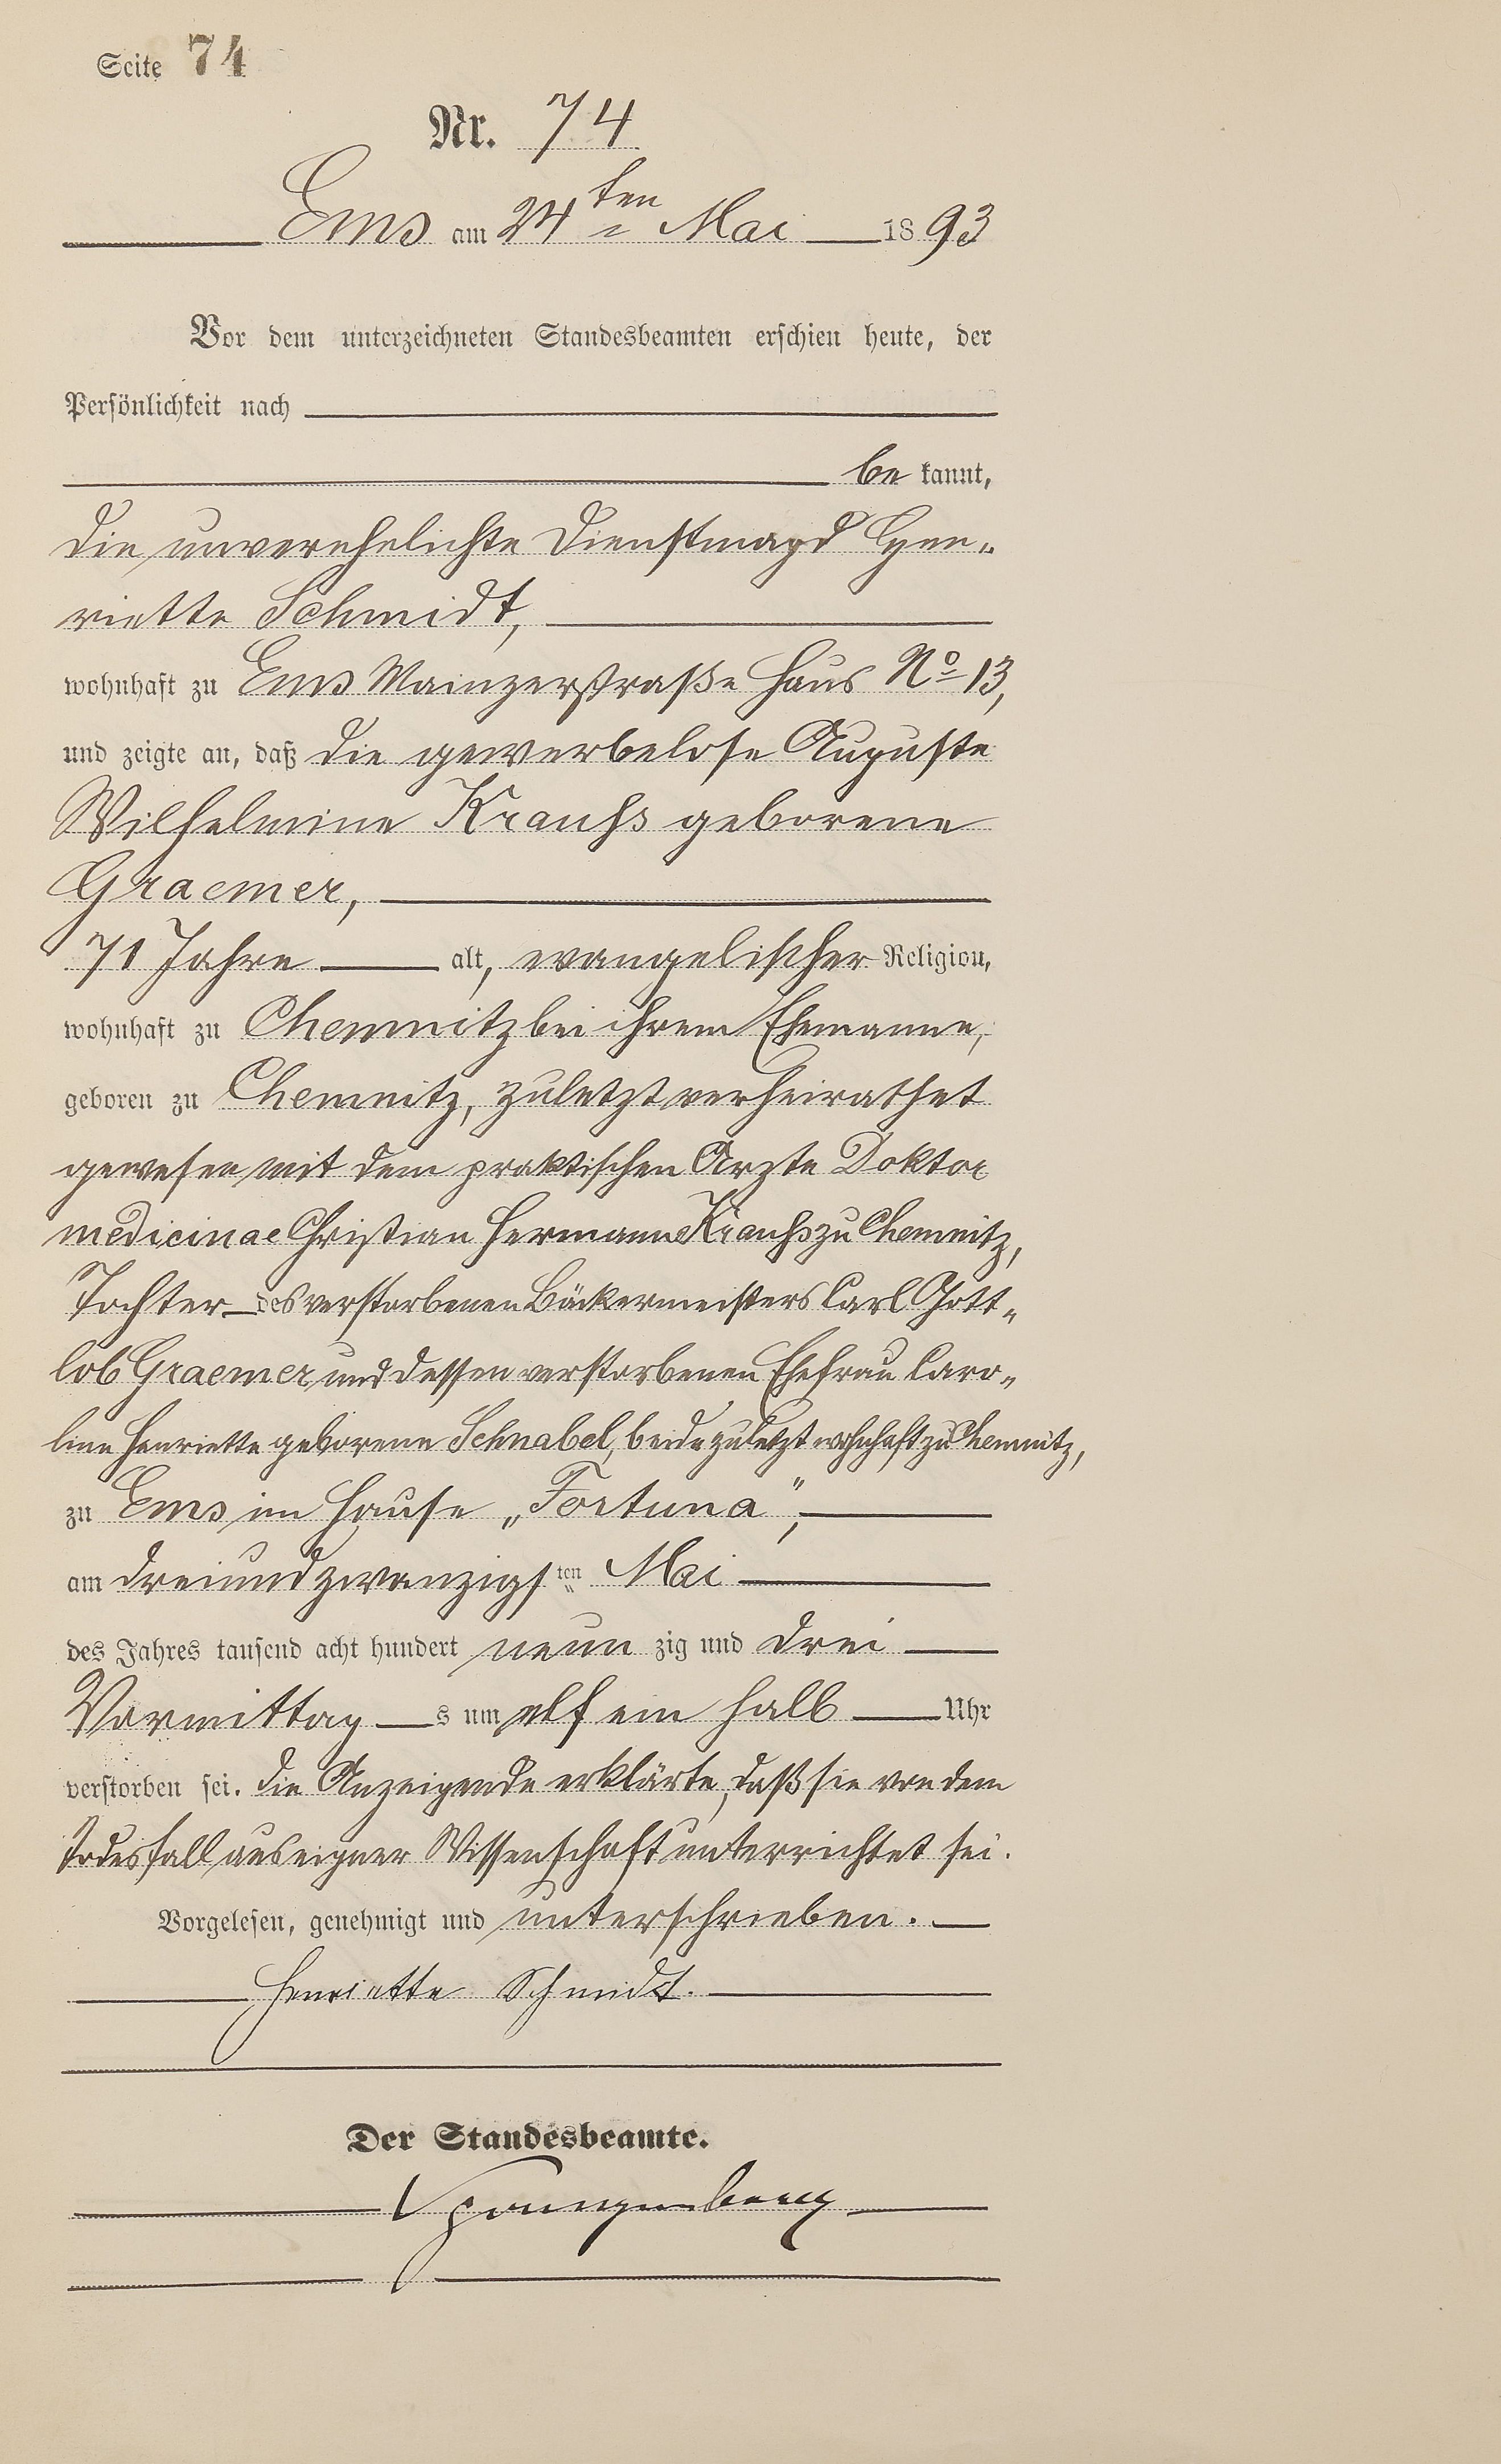 Seite 74
Nr. 74
Ems am 24ten Mai 1893
Vor dem unterzeichneten Standesbeamten erschien heute, der
Persönlichkeit nach
be kannt,
die unverehelichte Dienstmagd Hen„
riette Schmidt,
wohnhaft zu Ems Mainzerstraße Haus No 13,
und zeigte an, daß die gewerbelose Auguste
Wilhelmine Krauhs geborene
Graemer,
71 Jahre alt, evangelischer Religion,
wohnhaft zu Chemnitz bei ihrem Ehemanne,
geboren zu Chemnitz, zuletzt verheirathet
gewesen mit dem praktischen Arzte Doktor
medicinae Christian Hermann Krauhs zu Chemnitz,
Tochter des verstorbenen Bäckermeisters Carl Gott„
lob Graemer und dessen verstorbenen Ehefrau Caro„
line Henriette geborene Schnabel, beide zuletzt wohnhaft zu Chemnitz,
zu Ems im Hause „Fortuna",
am dreiundzwanzigsten Mai
des Jahres tausend acht hundert neun zig und drei
Vormittag s um elf ein halb Uhr
verstorben sei. Die Anzeigende erklärte, daß sie von dem
Todesfall aus eigner Wissenschaft unterrichtet sei.
Vorgelesen, genehmigt und unterschrieben.
Henriette Schmidt.
Der Standesbeamte.
Spangenberg